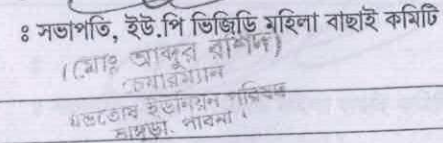 ঃ সভাপতি, ইউ.পি ভিজিডি মহিলা বাছাই কমিটি
(মোঃ আব্দুর রশিদ)
চেয়ারম্যান
ইউনিয়ন পরিষদ
পাবনা।